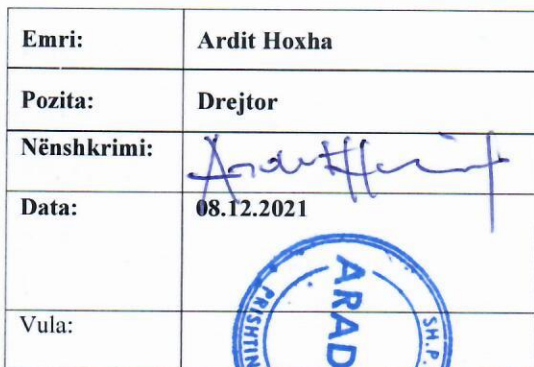 Emri: Ardit Hoxha
Pozita: Drejtor
Nënshkrimi:
Data: 08.12.2021
Vula:
ARAD
SH.P.
PRISHTIN